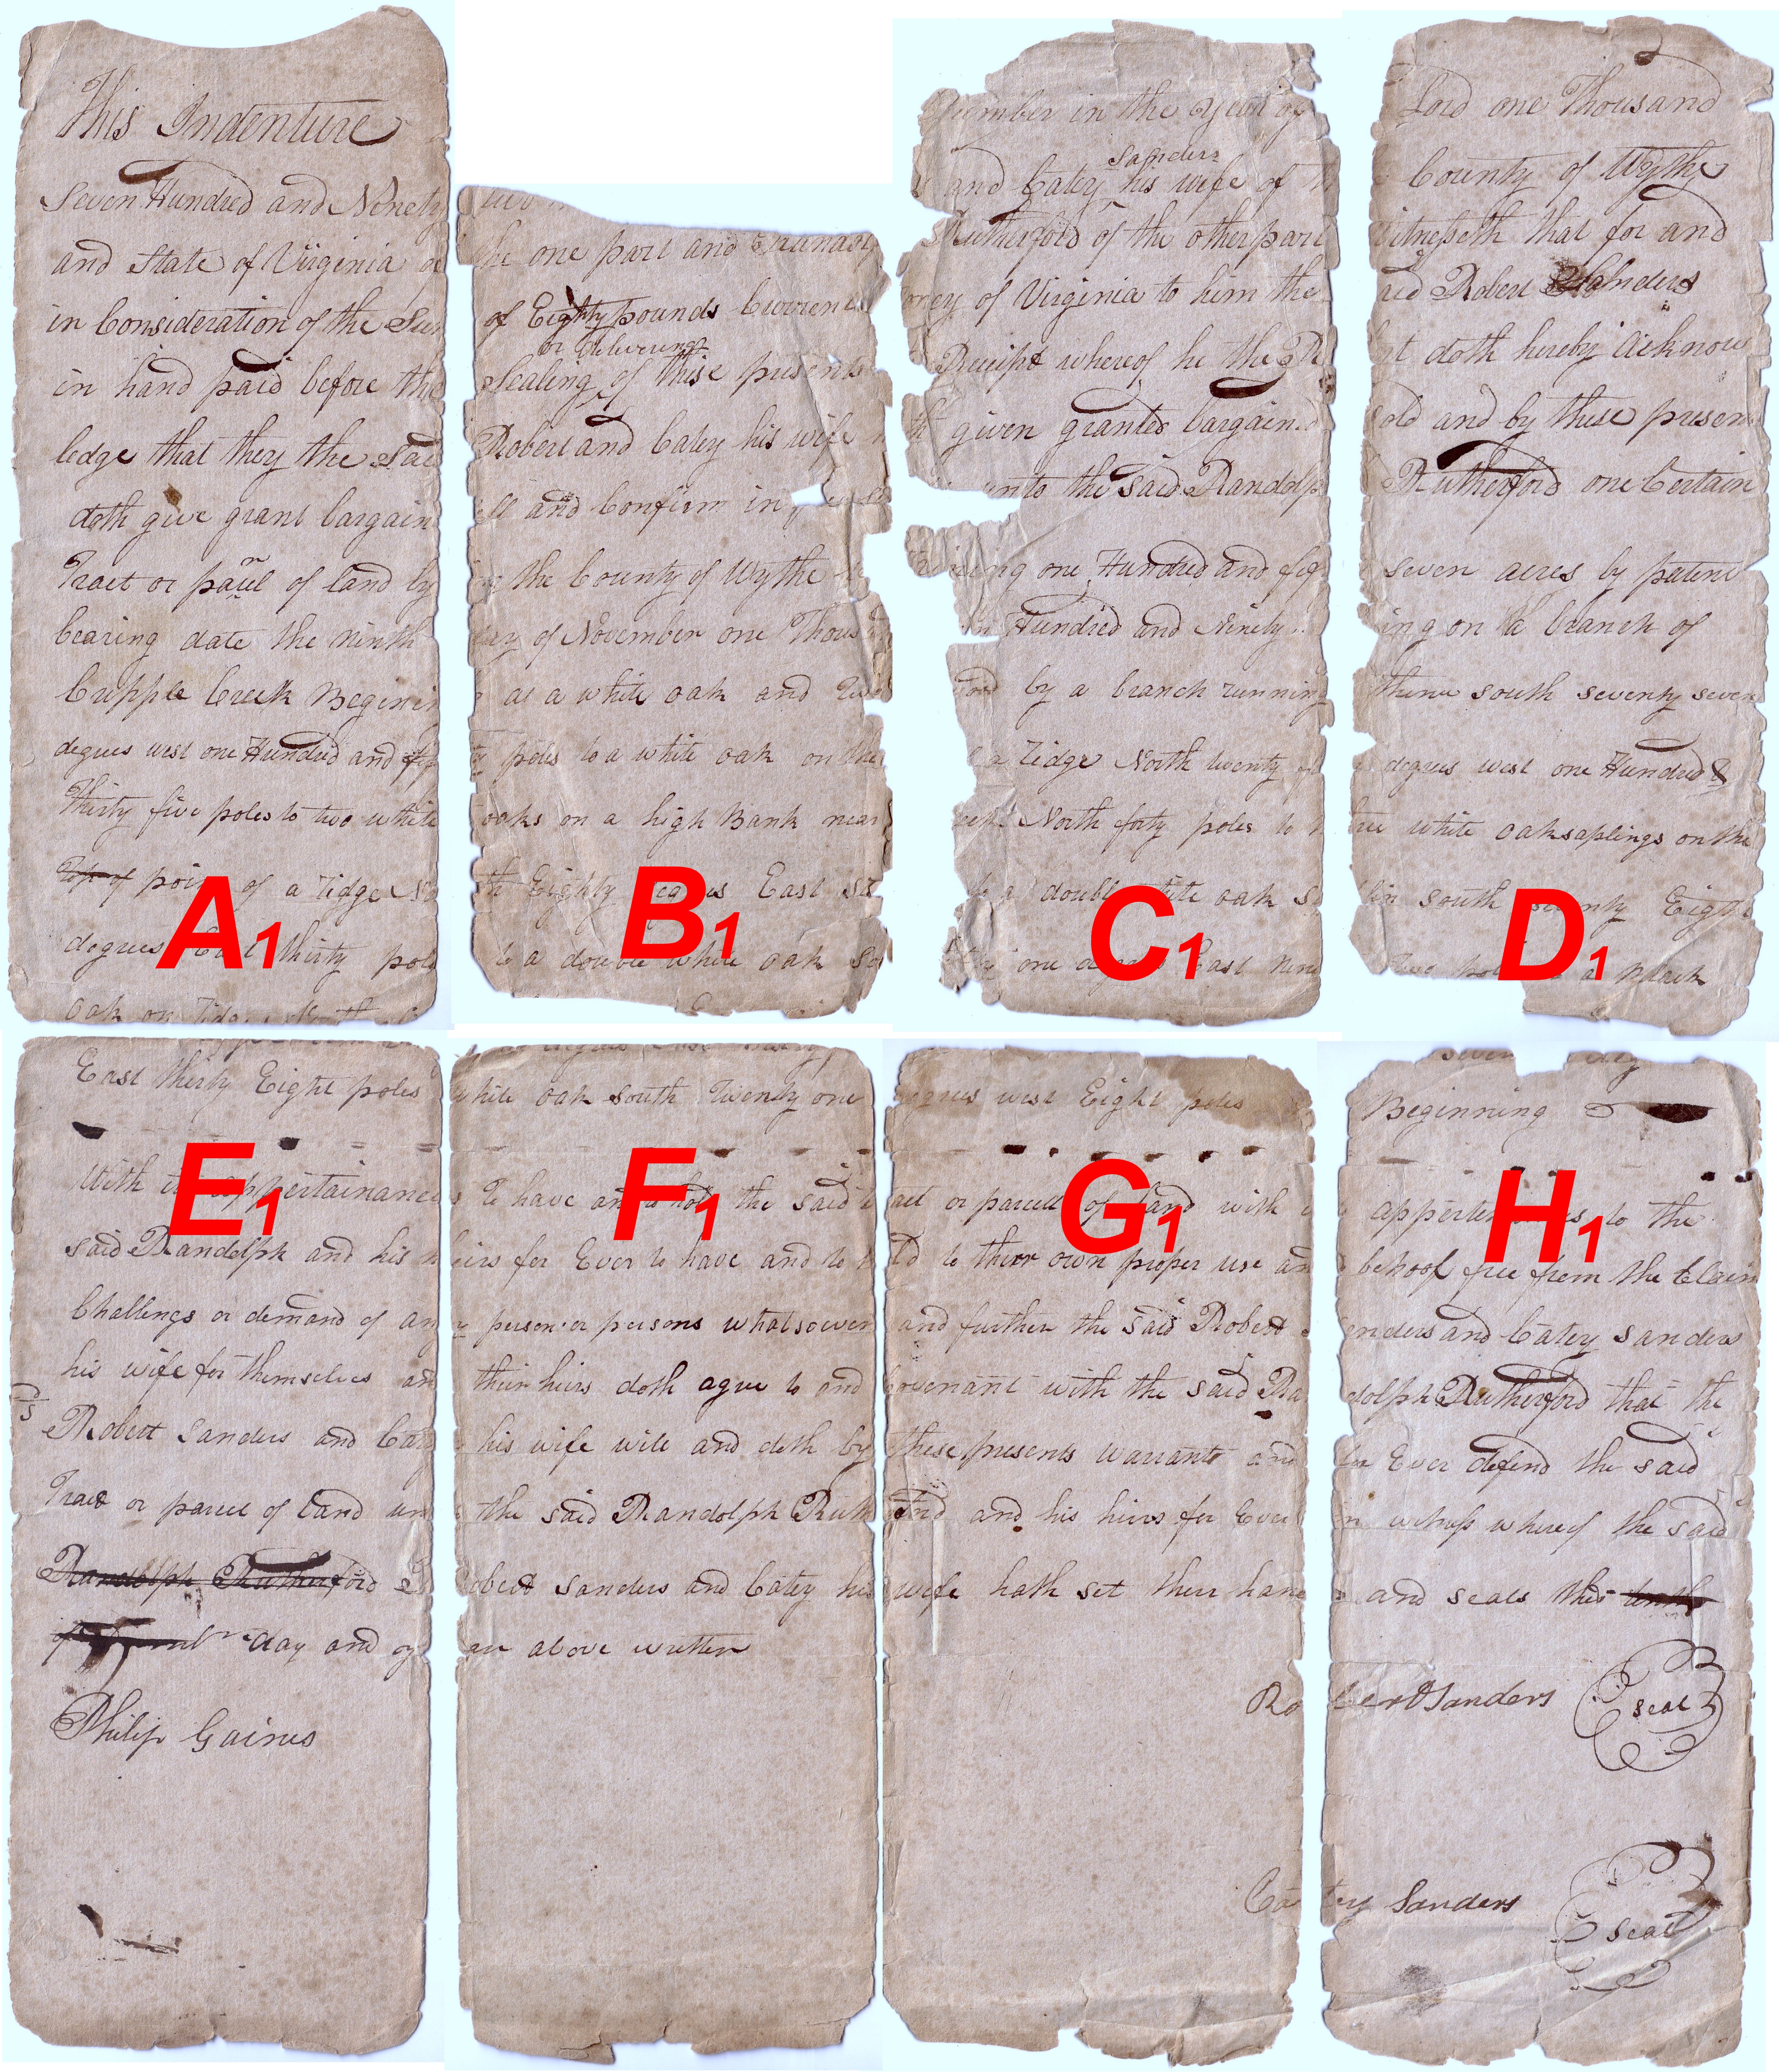 This Indenture ember in the year of Lord one Thousand
Sanders
Seven Hundred and Ninety and Catey his wife of County of Wythe
and State of Virginia of the one part and Rutherford of the other part Witnesseth that for and
in Consideration of the Sum of Eighty pounds Current money of Virginia to him the said Robert Sanders
or delivering
in hand paid before the Sealing of these presents Receipt whereof he the doth hereby Acknow
ledge that they the Said Robert and Catey his wife hath given granted bargained sold and by these presents
doth give grant bargain sell and Confirm unto the said Randolph Rutherford one Certain
Tract or parcel of land by the County of Wythe one Hundred and fifty Seven acres by patent
bearing date the ninth day of November one Thousand Hundred and Ninety ing on a branch of
Cripple Creek Begining at a white oak and two by a branch running thence south seventy seven
degrees west one Hundred and fifty poles to a white oak on the Ridge North twenty degrees west one Hundred &
Thirty five poles to two white oaks on a high Bank near North forty poles to three white oak saplings on the
Top of point of a ridge North Eighty degrees East to a double white oak South seventy Eight
degrees East thirty poles to a double white oak So one degree East nine two poles a Black
oak on
A1 B1 C1 D1
seven
East thirty Eight poles white oak south Twenty one degrees west Eight poles Beginning
With its appertainances To have and to hold the said tract or parcell of land with appertenances to the
said Randolph and his heirs for Ever to have and to hold to their own proper use and behoof free from the Claim
Challengs or demand of any person or persons whatsoever and further the said Robert Sanders and Catey Sanders
his wife for themselves and their heirs doth agree to and covenant with the said Randolph Rutherford that the
Robert Sanders and Catey his wife will and doth by these presents warrant and for Ever defend the said
Tract or parcel of land unto the said Randolph Rutherford and his heirs for Ever In witness whereof the said
Randolph Rutherford Robert Sanders and Catey his wife hath set their hands and seals this tenth
of day and year above written
Robert Sanders seal
Philip Gaines
Catey Sanders seal
E1 F1 G1 H1